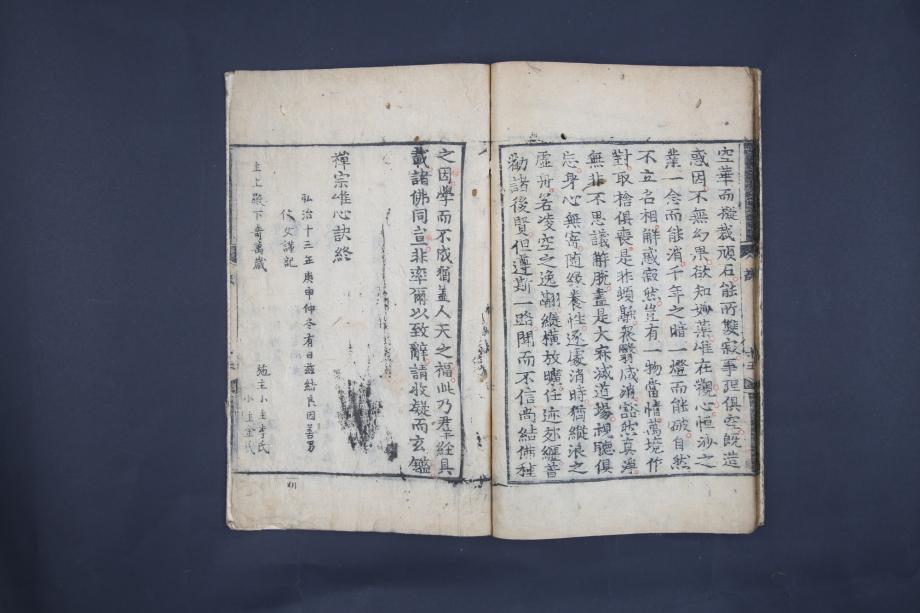 空華而擬栽頑石能所雙寂事理俱空旣造
惑因不無幻果欲知妙藥唯在觀心恒沙之
業一念而能消千年之暗一燈而能破自然
不立名相解惑寂然豈有一物當情萬境作
對取捨俱喪是非頓融衆翳咸消豁然眞淨
無非不思議解脫盡是大寂滅道場視聽俱
忘身心無寄隨緣養性逐處消時猶縱浪之
虛舟若凌空之逸翮縱橫放曠任迹郊纏普
勸諸後賢但遵斯一路聞而不信尚結佛種
之因學而不成猶益人天之福此乃羣經具
載諸佛同宣非率爾以致辭請收凝而玄鑑
禪宗唯心訣終
弘治十三年庚申仲冬有日玆結良因善男
伏父謹記
主上殿下壽萬歲
施主小主李氏
小主金氏